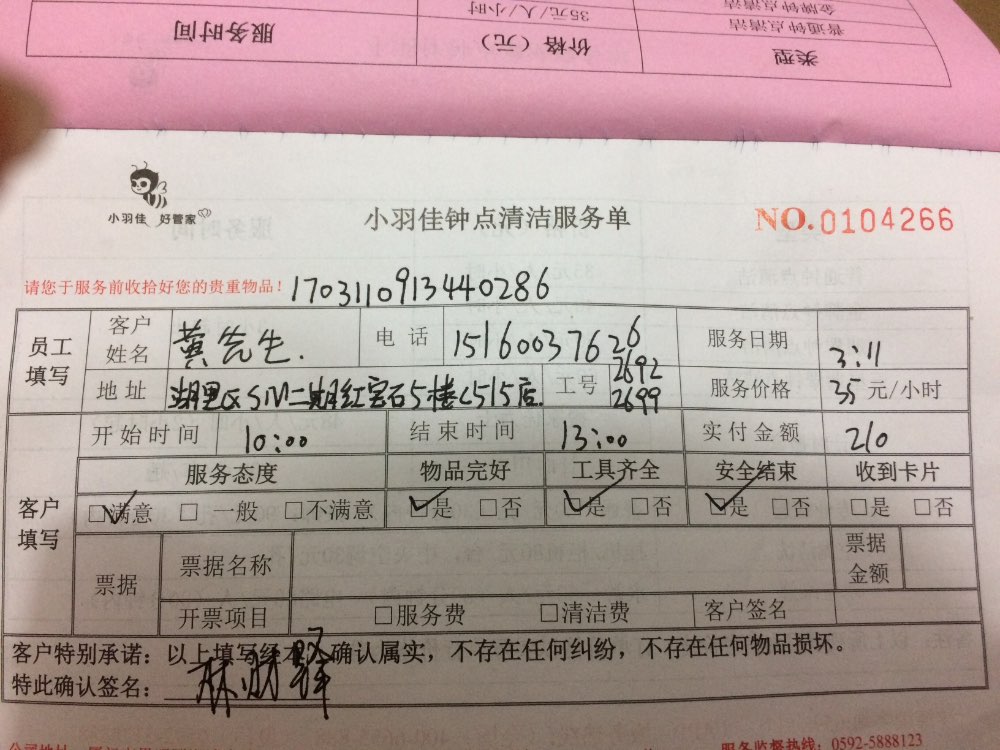 金牌钟点清洁 35元/人/小时
普通钟点清洁
类型 价格（元） 服务时间
小羽佳 好管家
小羽佳钟点清洁服务单
NO.0104266
请您于服务前收拾好您的贵重物品！ 1703110913440286
员工填写
客户姓名 黄先生. 电话 15160037626 服务日期 3:11
地址 湖里区SM二期红宝石5楼L515店. 工号 2692 2699 服务价格 35元/小时
客户填写
开始时间 10:00 结束时间 13:00 实付金额 210
服务态度 物品完好 工具齐全 安全结束 收到卡片
☑满意 □一般 □不满意 ☑是 □否 ☑是 □否 ☑是 □否 □是 □否
票据 票据名称 票据金额
开票项目 □服务费 □清洁费 客户签名
客户特别承诺：以上填写经本人确认属实，不存在任何纠纷，不存在任何物品损坏。
特此确认签名：
服务监督热线：0592-5888123